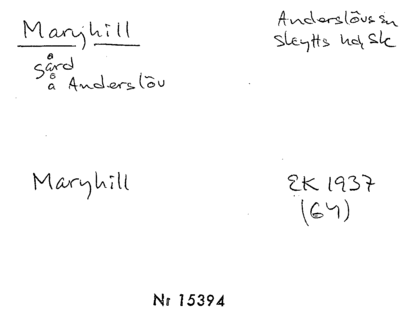 Maryhill
Anderslövs sn
Skytts hd, Sk
gård
å Anderslöv
Maryhill
EK 1937
(64)
Nr 15394